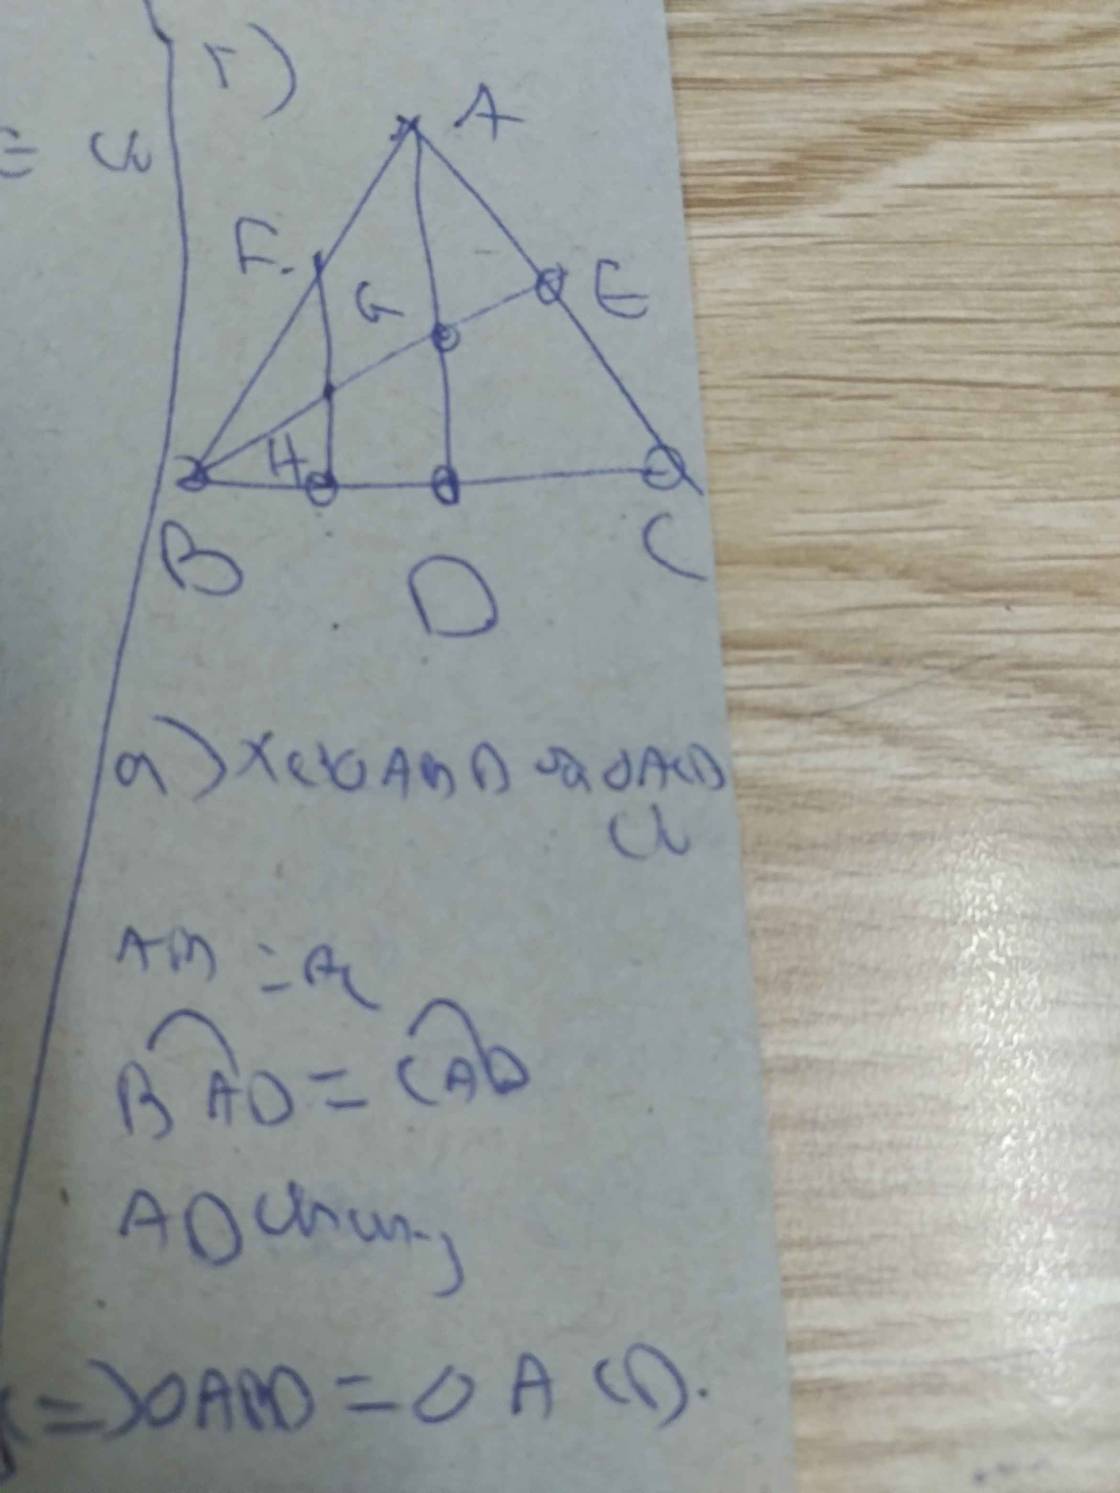 = c
r)
A
F.
G
E
H
B
D
C
a) Xét ΔABD và ΔACD
có
AB = AC
BAD = CAD
AD chung
=> ΔABD = ΔACD.